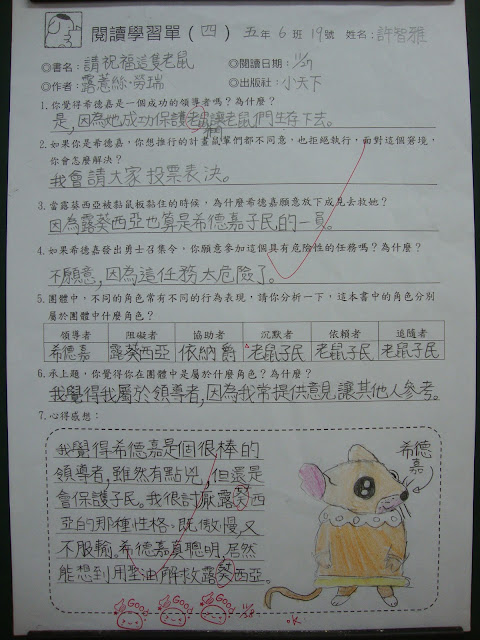 閱讀學習單(四) 五年6班19號 姓名:許智雅
◎書名:請祝福這隻老鼠 ◎閱讀日期:11/27
◎作者:露薏絲·勞瑞 ◎出版社:小天下
1.你覺得希德嘉是一個成功的領導者嗎?為什麼?
是,因為她成功保護老鼠讓老鼠們生存下去。
2.如果你是希德嘉,你想推行的計畫鼠輩們都不同意,也拒絕執行,面對這個窘境,
你會怎麼解決?
我會請大家投票表決。
3.當露葵西亞被黏鼠板黏住的時候,為什麼希德嘉願意放下成見去救她?
因為露葵西亞也算是希德嘉子民的一員。
4.如果希德嘉發出勇士召集令,你願意參加這個具有危險性的任務嗎?為什麼?
不願意,因為這任務太危險了。
5.團體中,不同的角色常有不同的行為表現,請你分析一下,這本書中的角色分別
屬於團體中什麼角色?
領導者 阻礙者 協助者 沉默者 依賴者 追隨者
希德嘉 露葵西亞 依納爵 老鼠子民 老鼠子民 老鼠子民
6.承上題,你覺得你在團體中是屬於什麼角色?為什麼?
我覺得我屬於領導者,因為我常提供意見讓其他人參考。
7.心得感想:
我覺得希德嘉是個很棒的
領導者,雖然有點兇,但還是
會保護子民。我很討厭露葵西
亞的那種性格。既傲慢,又
不服輸。希德嘉真聰明,居然
能想到用堅油解救露葵西亞。
希德嘉
GOOD GOOD GOOD
O.K